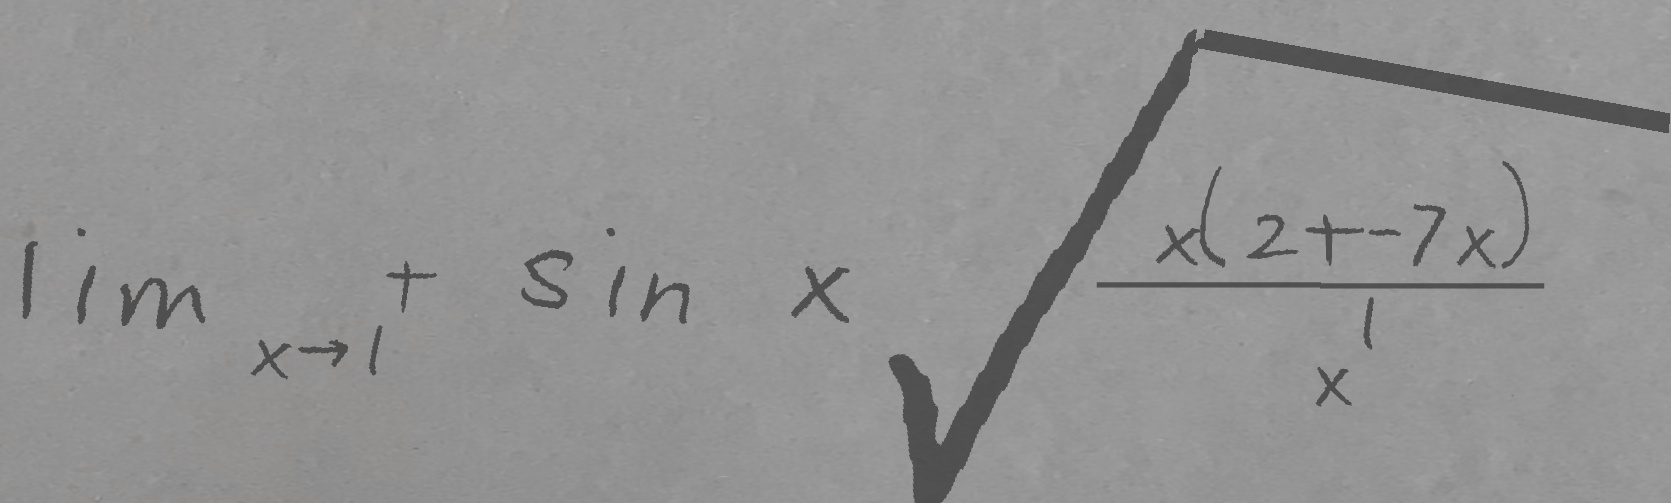 \lim_{x \to 1^+} \sin x \sqrt{\frac{x(2+-7x)}{x^1}}